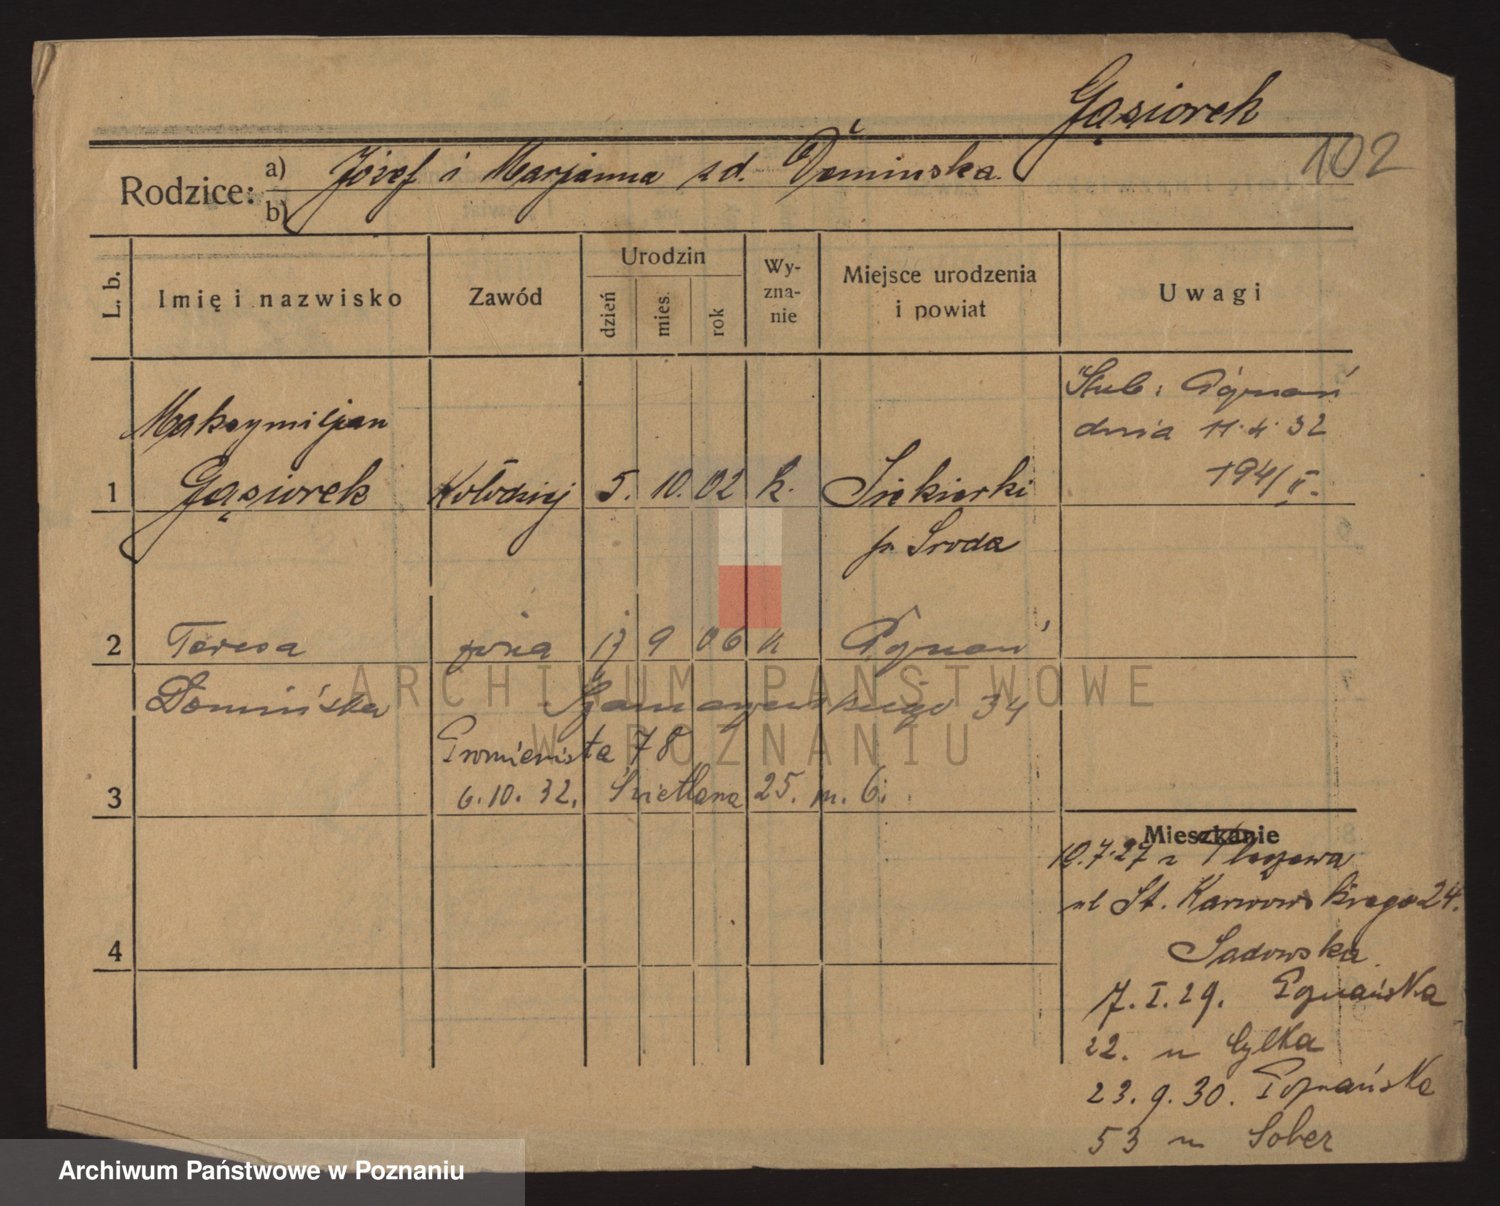 Gąsiorek
102
Rodzice: a) Józef i Marjanna zd. Domińska
b)
L. b. Imię i nazwisko Zawód Urodzin dzień mies. rok Wyznanie Miejsce urodzenia i powiat Uwagi
Ślub: Poznań
dnia 11.4.32
194/II.
Maksymiljan
1 Gąsiorek Kołodziej 5. 10. 02 k. Siekierki
p. Środa
2 Teresa żona 17 9 06 k Poznań
Domińska 34
Promienista 78
3 6.10.32. Świetlana 25. m. 6.
Mieszkanie
10.7.27 z
ul St. Karwowskiego 24.
Sadowska
7.I.29. Poznańska
22. u Cylka
23.9.30. Poznańska
53 u Sober
4
ARCHIWUM PAŃSTWOWE
W POZNANIU
Archiwum Państwowe w Poznaniu